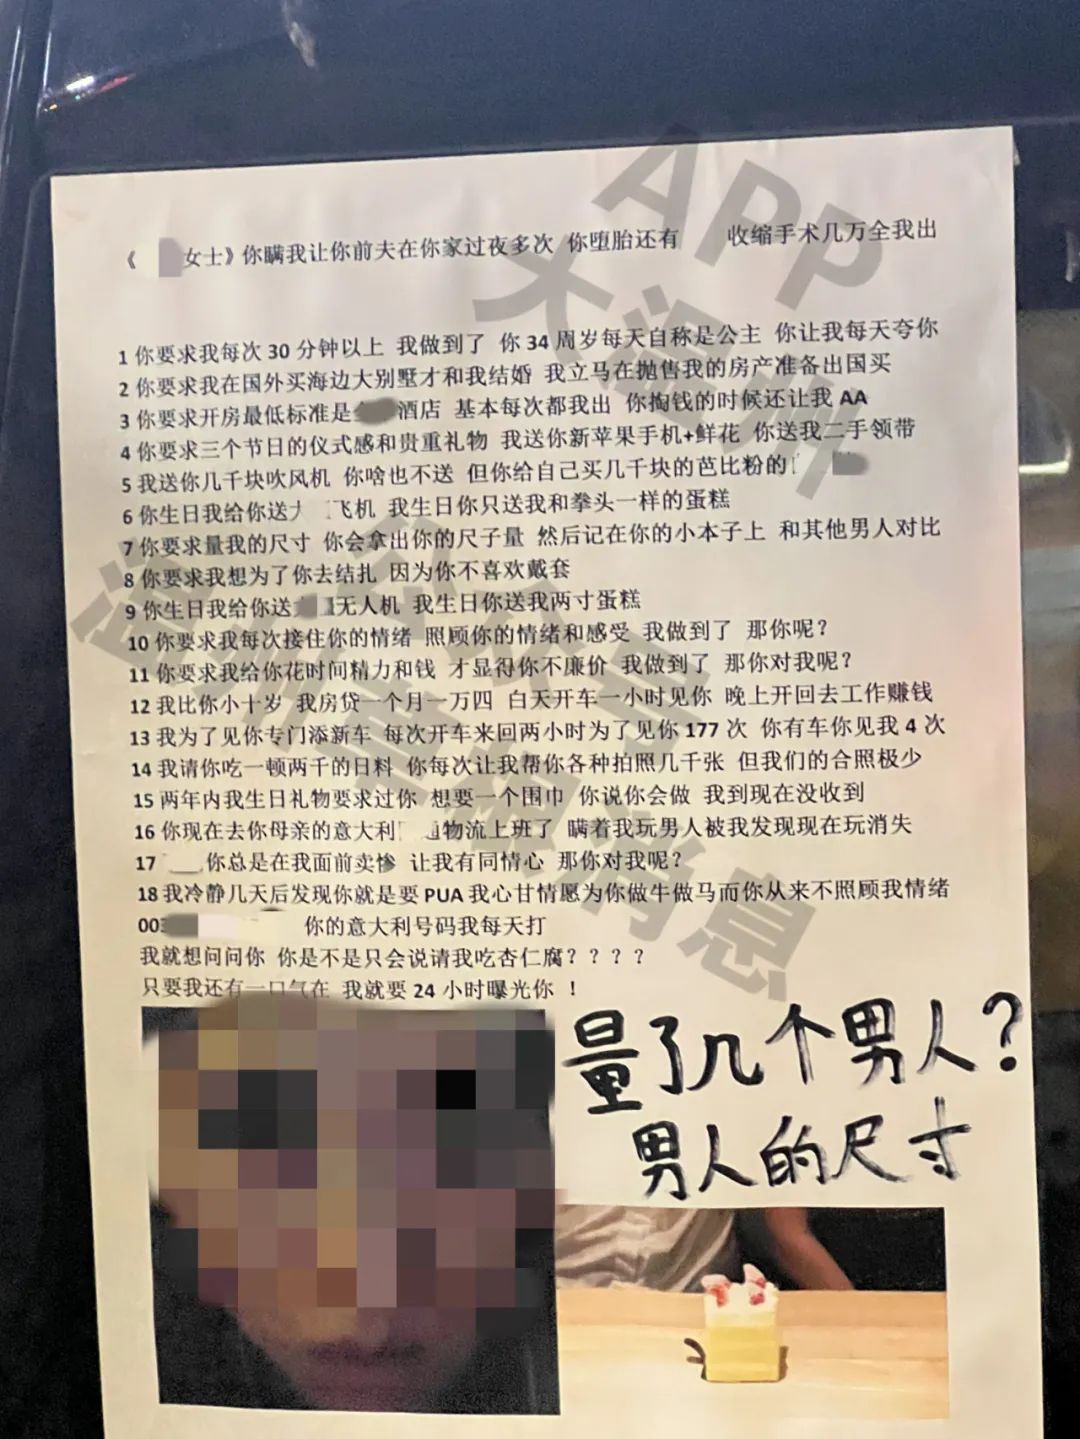 《 女士》你瞒我让你前夫在你家过夜多次 你堕胎还有 收缩手术几万全我出
1 你要求我每次 30 分钟以上 我做到了 你 34 周岁每天自称是公主 你让我每天夸你
2 你要求我在国外买海边大别墅才和我结婚 我立马在抛售我的房产准备出国买
3 你要求开房最低标准是 酒店 基本每次都我出 你掏钱的时候还让我 AA
4 你要求三个节日的仪式感和贵重礼物 我送你新苹果手机+鲜花 你送我二手领带
5 我送你几千块吹风机 你啥也不送 但你给自己买几千块的芭比粉的
6 你生日我给你送大 飞机 我生日你只送我和拳头一样的蛋糕
7 你要求量我的尺寸 你会拿出你的尺子量 然后记在你的小本子上 和其他男人对比
8 你要求我想为了你去结扎 因为你不喜欢戴套
9 你生日我给你送 无人机 我生日你送我两寸蛋糕
10 你要求我每次接住你的情绪 照顾你的情绪和感受 我做到了 那你呢？
11 你要求我给你花时间精力和钱 才显得你不廉价 我做到了 那你对我呢？
12 我比你小十岁 我房贷一个月一万四 白天开车一小时见你 晚上开回去工作赚钱
13 我为了见你专门添新车 每次开车来回两小时为了见你 177 次 你有车你见我 4 次
14 我请你吃一顿两千的日料 你每次让我帮你各种拍照几千张 但我们的合照极少
15 两年内我生日礼物要求过你 想要一个围巾 你说你会做 我到现在没收到
16 你现在去你母亲的意大利 通物流上班了 瞒着我玩男人被我发现现在玩消失
17 你总是在我面前卖惨 让我有同情心 那你对我呢？
18 我冷静几天后发现你就是要 PUA 我心甘情愿为你做牛做马而你从来不照顾我情绪
003 你的意大利号码我每天打
我就想问问你 你是不是只会说请我吃杏仁腐？？？？
只要我还有一口气在 我就要 24 小时曝光你 ！
量了几个男人？
男人的尺寸
APP
大温州
温州草根消息